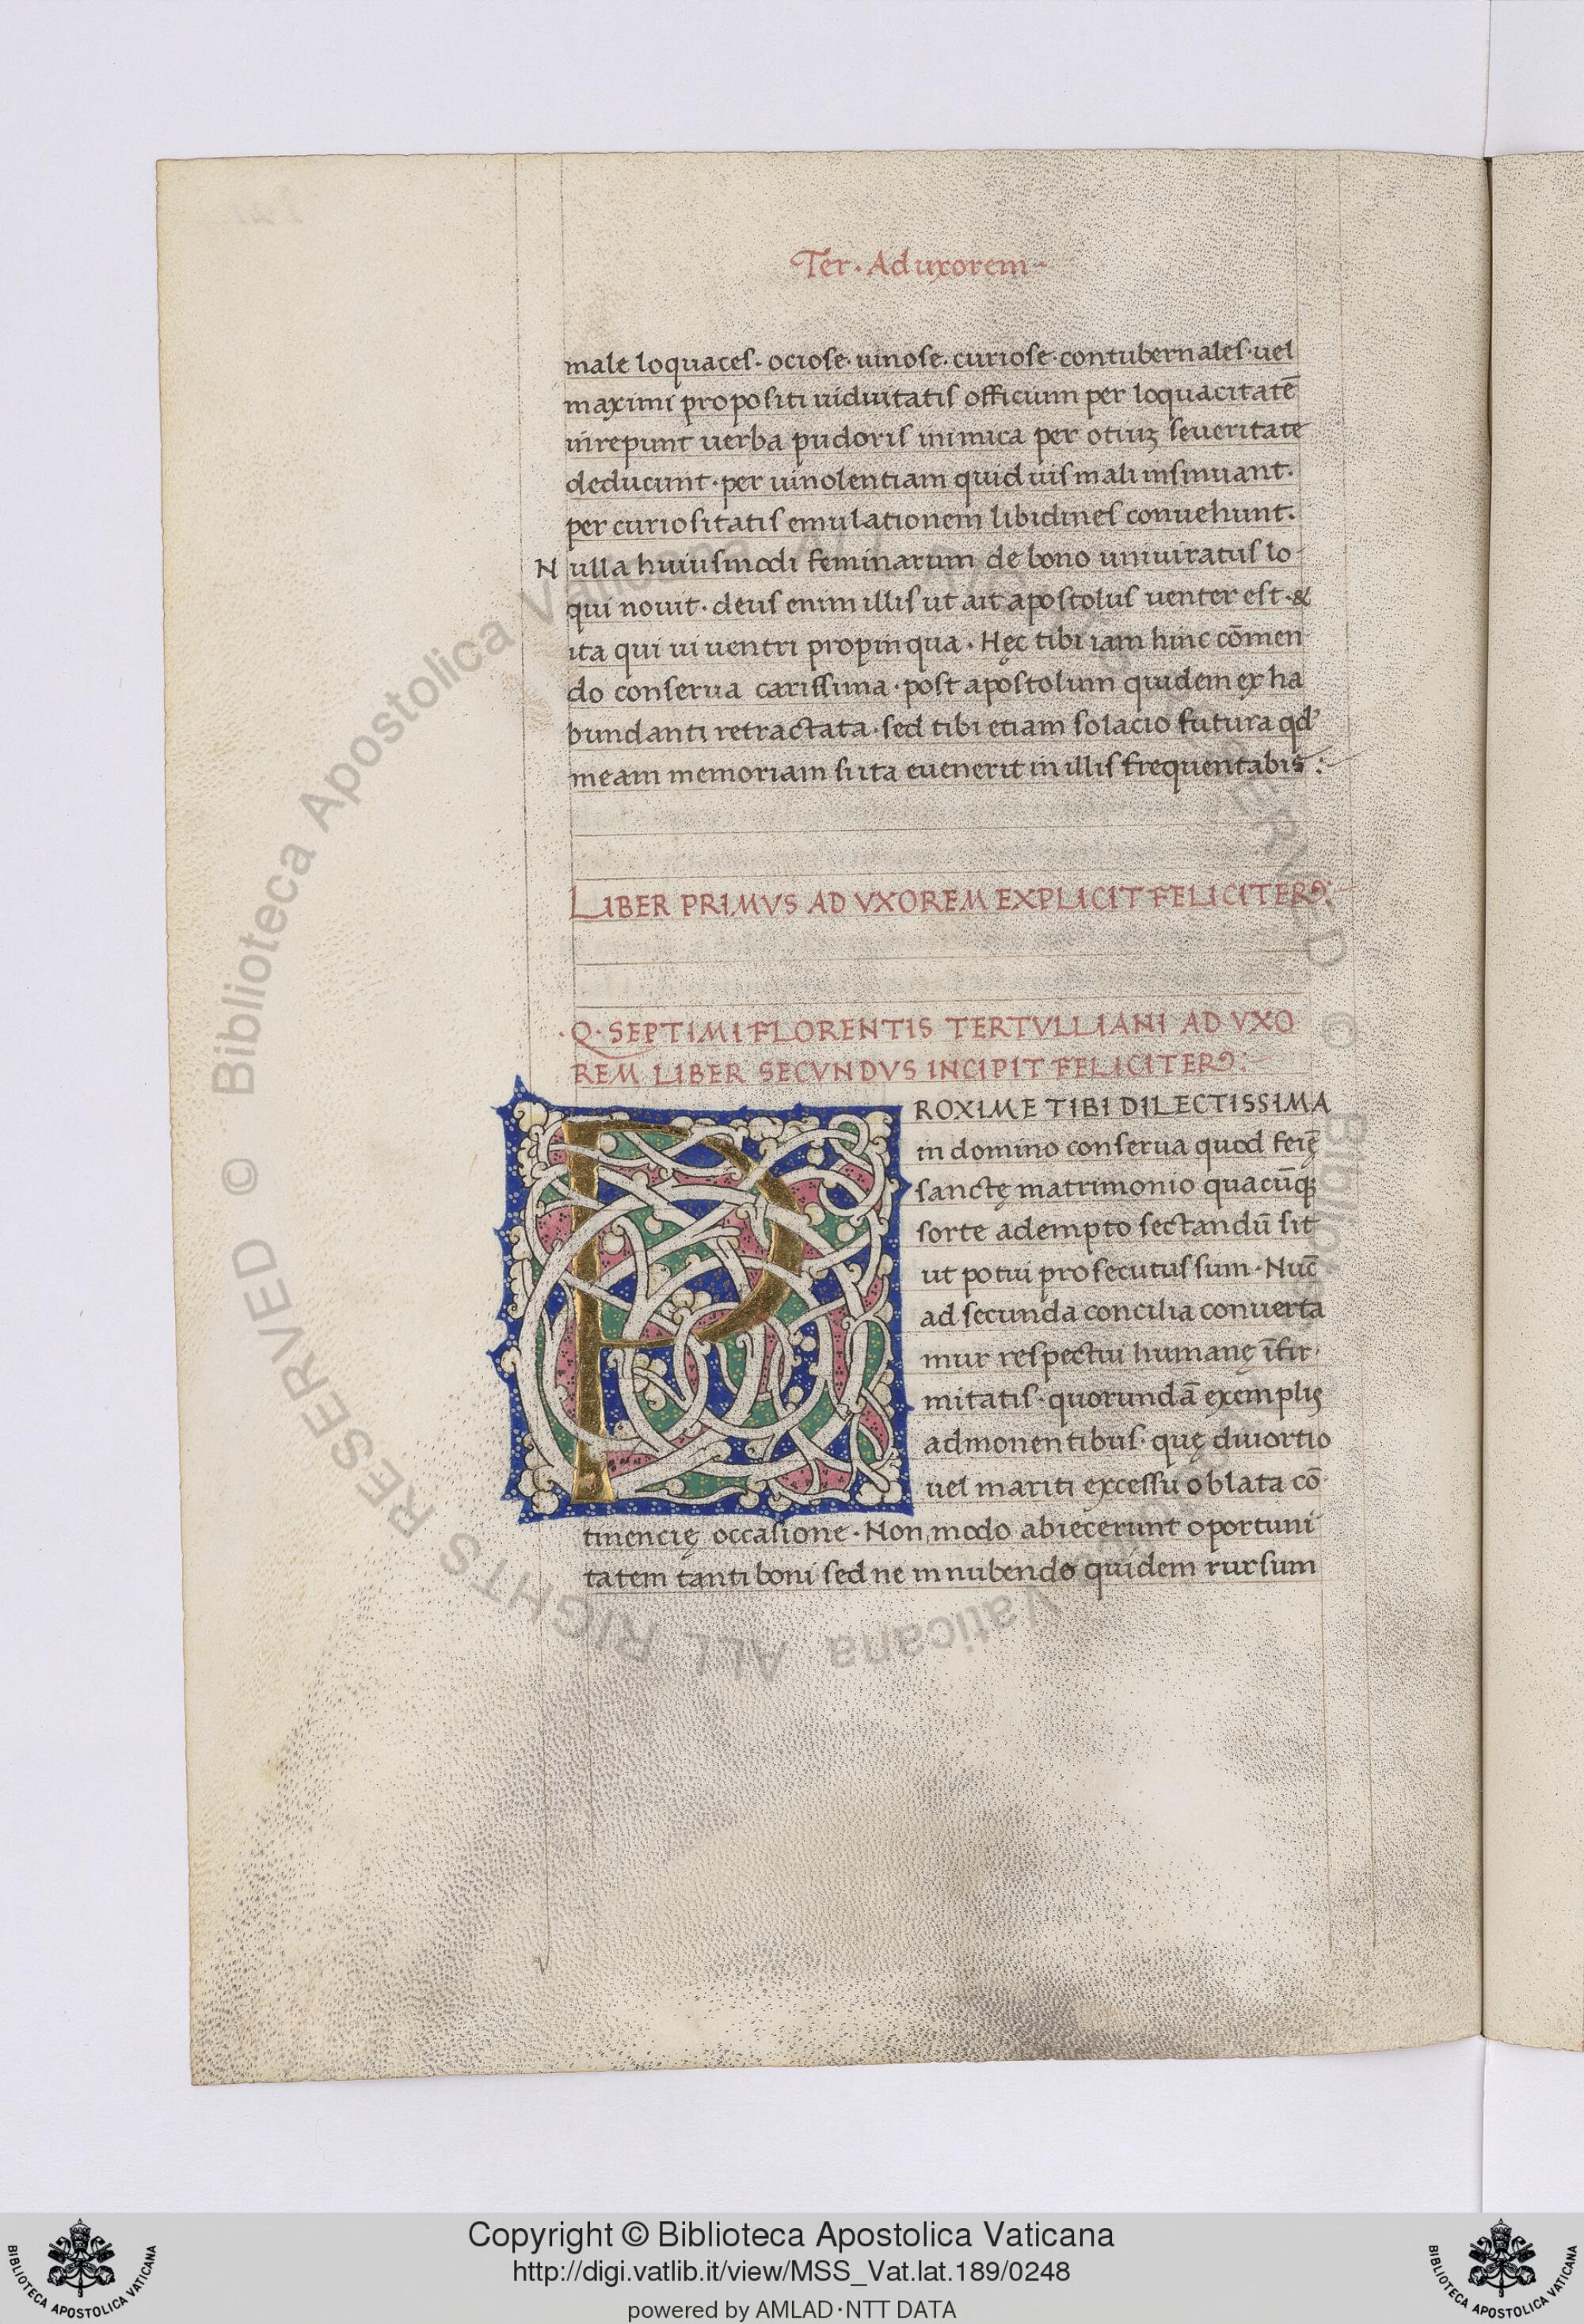 Ter · Ad uxorem
male loquaces · ociose · uinose · curiose · contubernales · uel
maximi propositi uiduitatis officium per loquacitatē
inrepunt uerba pudoris inimica per otiuꝫ seueritate
deducunt · per uinolentiam quid uis mali insinuant.
per curiositatis emulationem libidines conuehunt.
Nulla huiusmodi feminarum de bono uniuiratus lo-
qui nouit · deus enim illis ut ait apostolus uenter est · &
ita qui ui uentri propinqua · Hęc tibi iam hinc cōmen
do conserua carissima · post apostolum quidem ex ha
bundanti retractata · sed tibi etiam solacio futura qd'
meam memoriam si ita euenerit in illis frequentabis :
LIBER PRIMVS AD VXOREM EXPLICIT FELICITER :
· Q · SEPTIMI FLORENTIS TERTVLLIANI AD VXO
REM LIBER SECVNDVS INCIPIT FELICITER :
PROXIME TIBI DILECTISSIMA
in domino conserua quod feię̄
sanctę matrimonio quacūqꝫ
sorte adempto sectandū sit
ut potui prosecutus sum · Nuc̄
ad secunda concilia conuerta
mur respectui humanę īfir·
mitatis · quorundā exemplis
admonentibus · quę diuortio
uel mariti excessu oblata cō
tinencię occasione · Non modo abiecerunt oportuni
tatem tanti boni sed ne in nubendo quidem rursum
© Biblioteca Apostolica Vaticana ALL RIGHTS RESERVED © Biblioteca Apostolica Vaticana ALL RIGHTS RESERVED
Copyright © Biblioteca Apostolica Vaticana
http://digi.vatlib.it/view/MSS_Vat.lat.189/0248
powered by AMLAD · NTT DATA
BIBLIOTECA APOSTOLICA VATICANA
BIBLIOTECA APOSTOLICA VATICANA